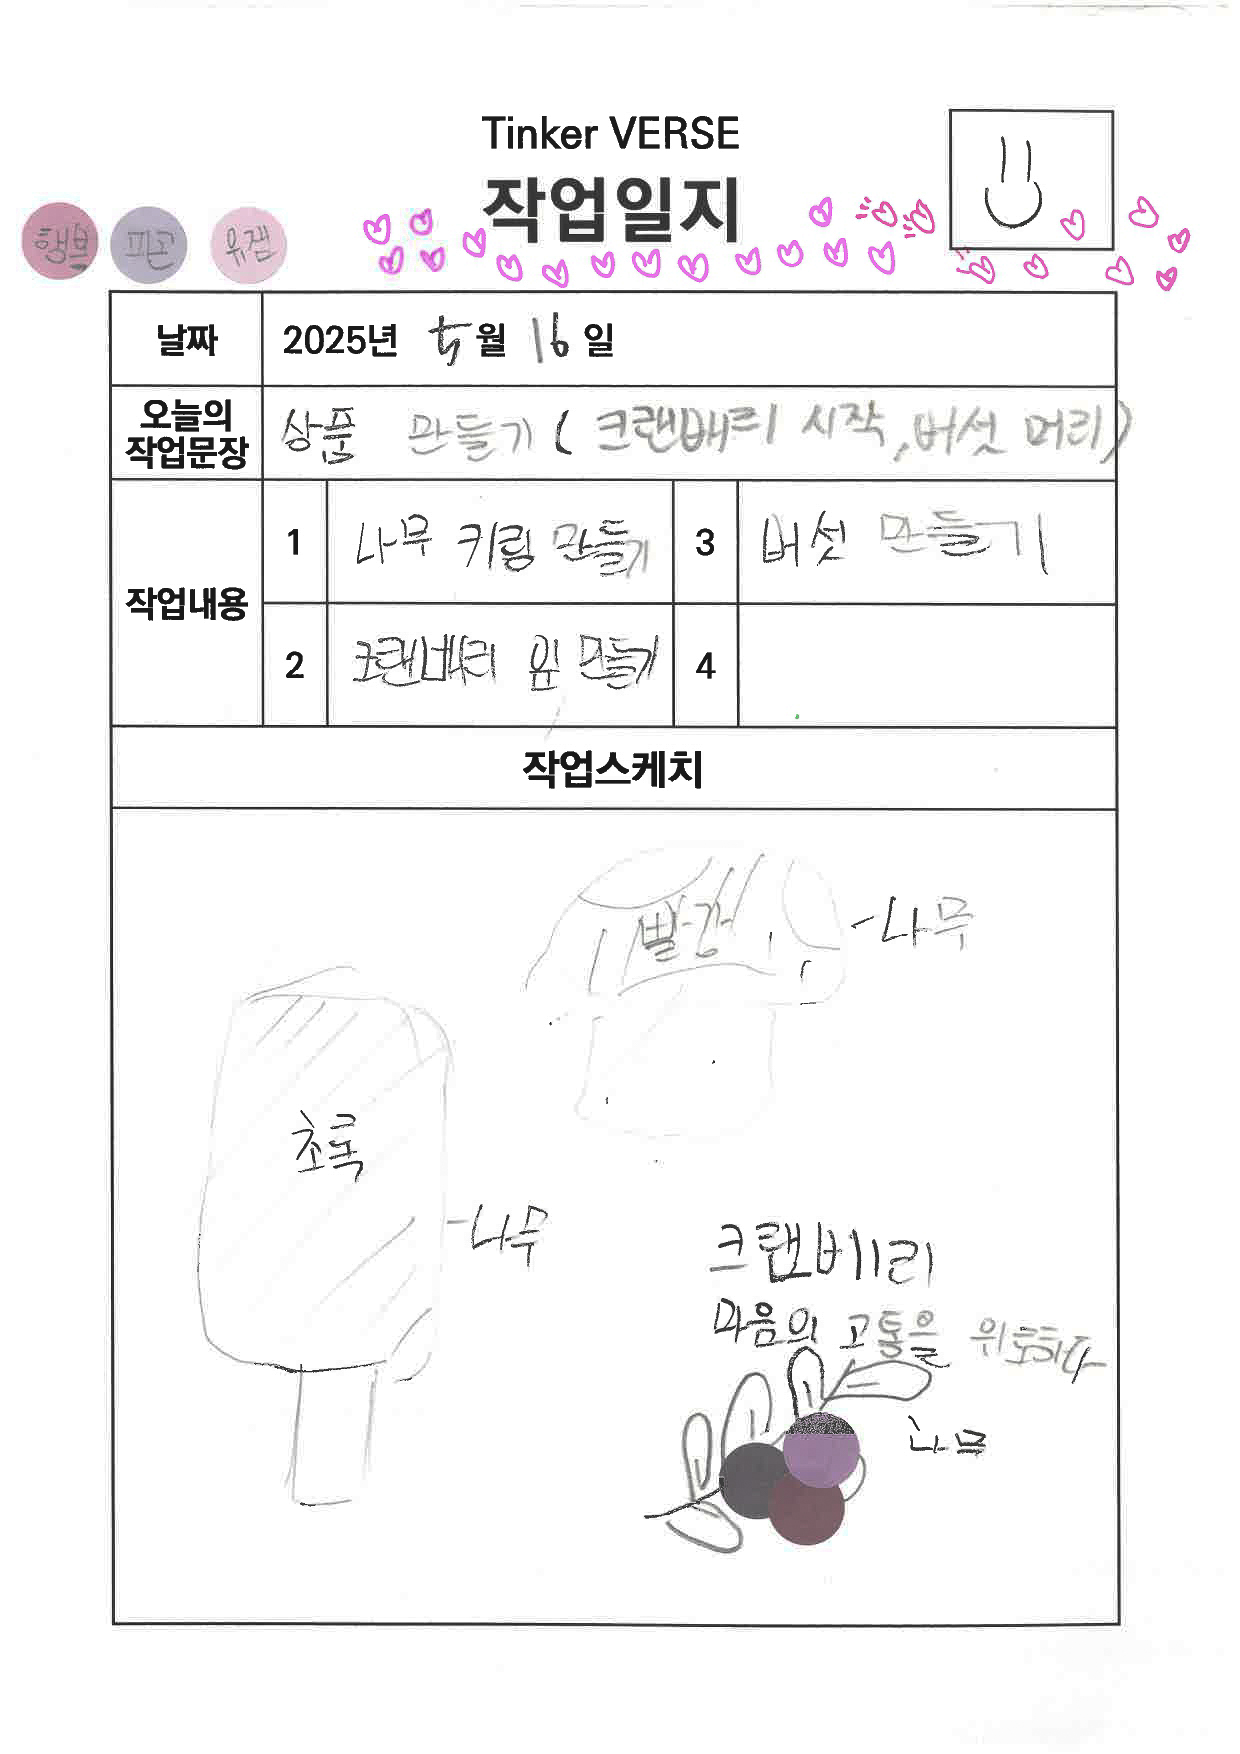 Tinker VERSE
작업일지
행복 피곤 유잼
날짜 2025년 5월 16일
오늘의 작업문장 상품 만들기 ( 크랜배리 시작, 버섯 머리)
작업내용
1 나무 키링 만들기
3 버섯 만들기
2 크랜배리 잎 만들기
4
작업스케치
빨강
-나무
초록
-나무
크랜베리
마음의 고통을 위로하다
나무